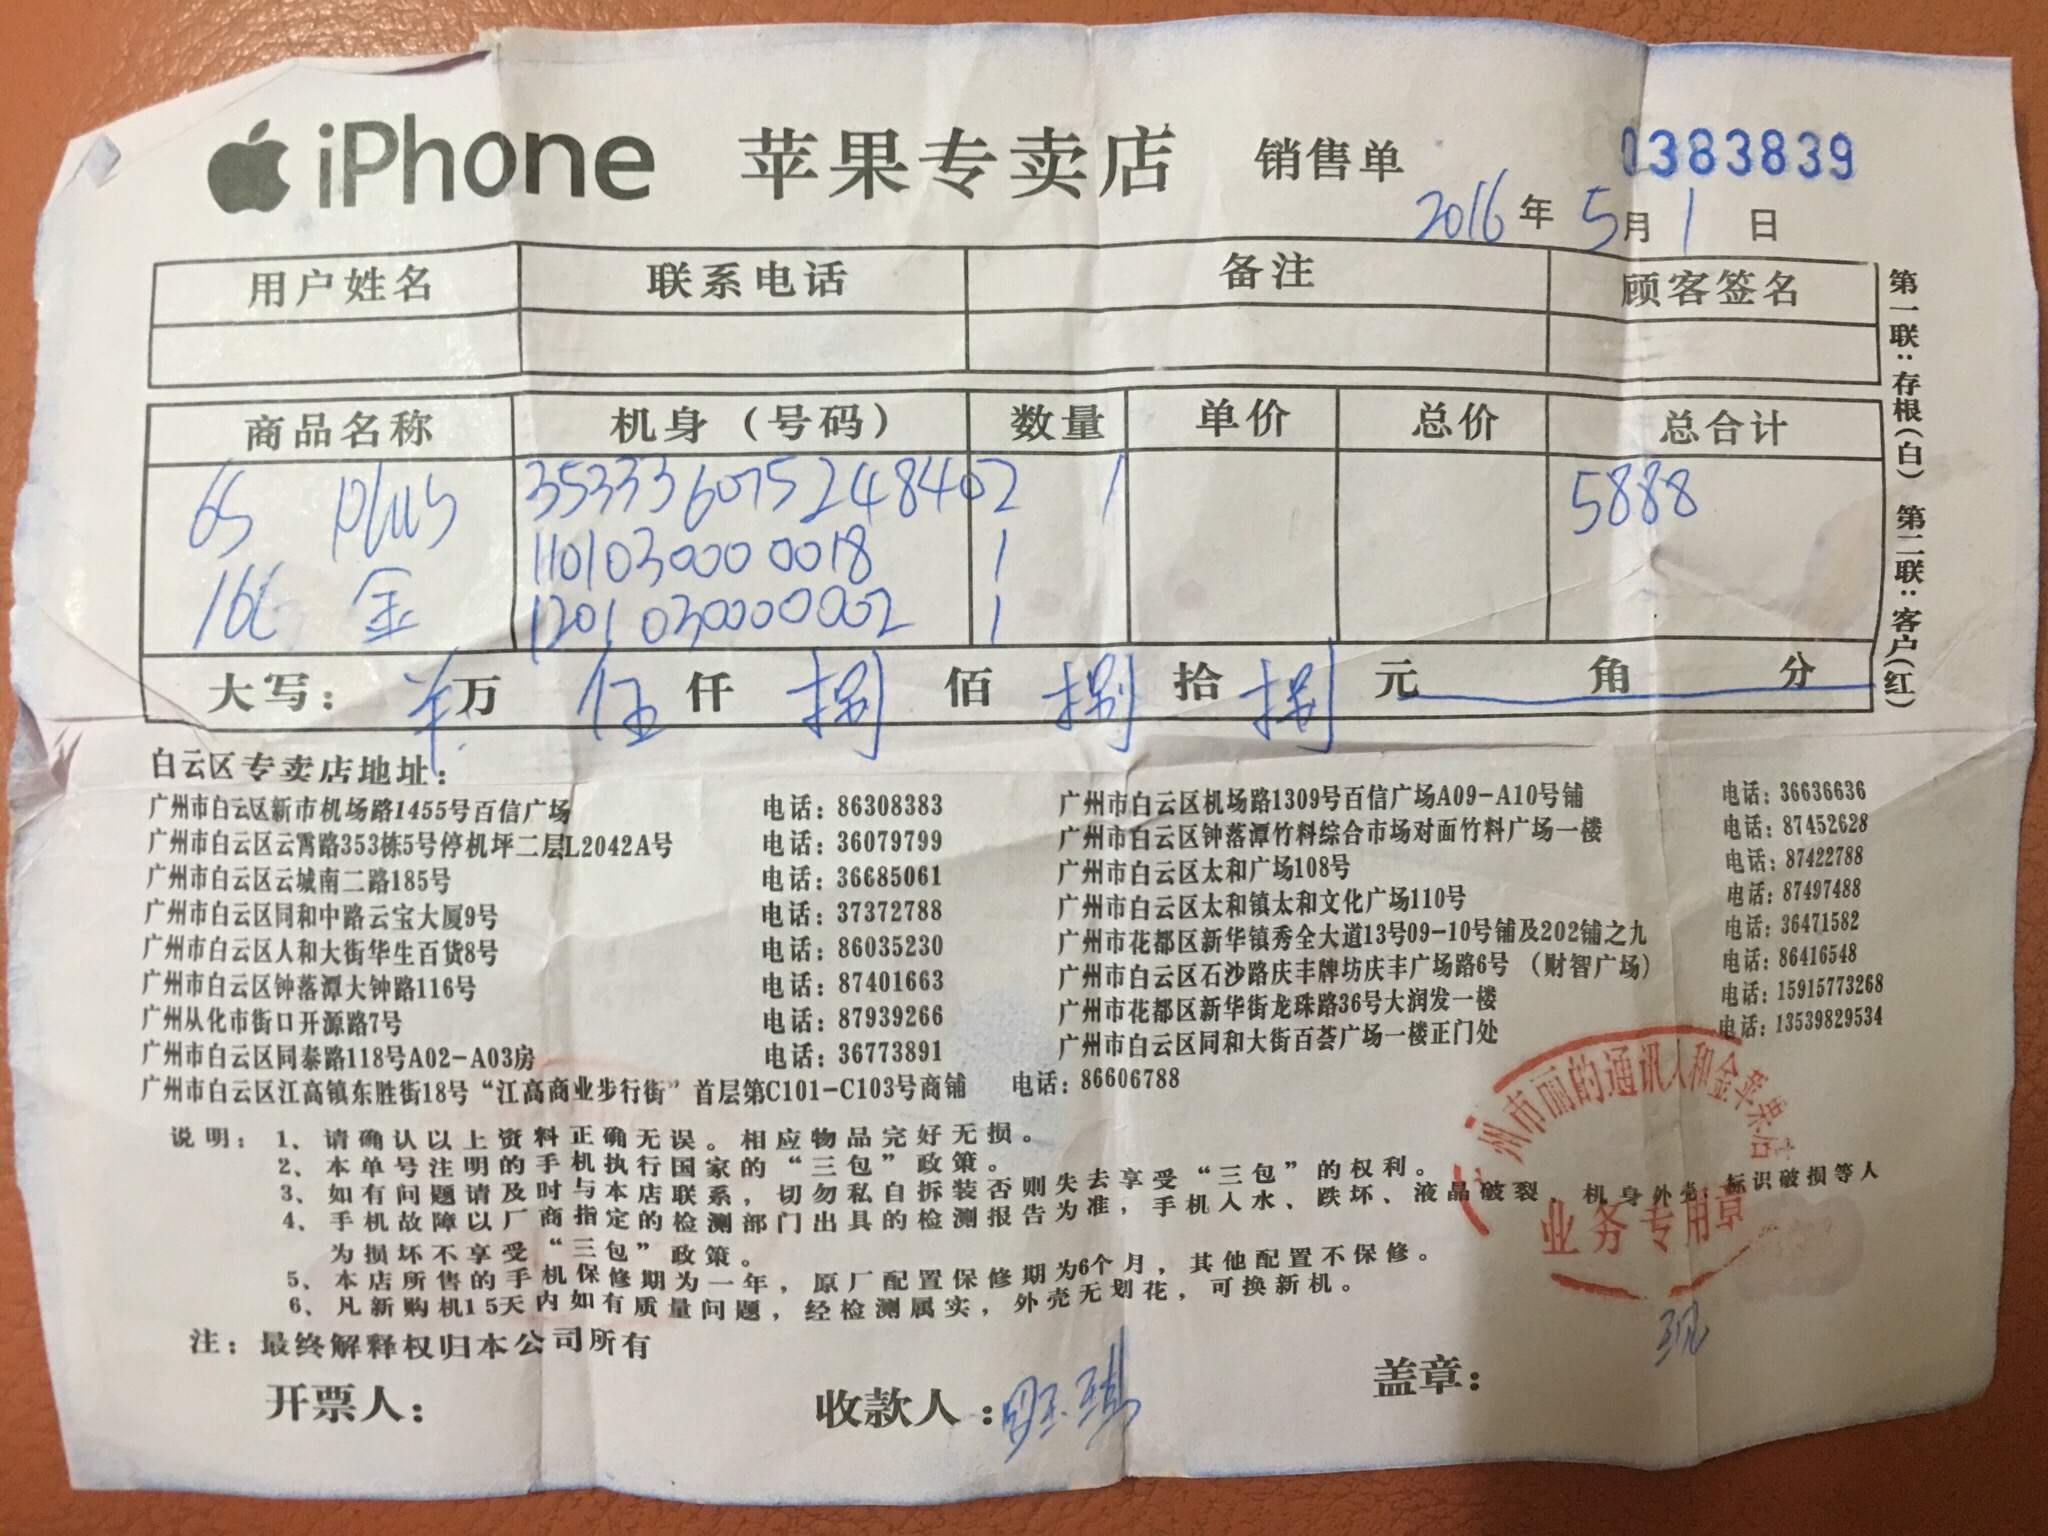 iPhone 苹果专卖店 销售单 0383839
2016 年 5 月 1 日
用户姓名 联系电话 备注 顾客签名
商品名称 机身（号码） 数量 单价 总价 总合计
6S plus 353336075248402 1 5888
16G 金 1101030000018 1
1201030000002 1
大写： 万 伍 仟 捌 佰 捌 拾 捌 元 角 分
第一联：存根(白) 第二联：客户(红)
白云区专卖店地址：
广州市白云区新市机场路1455号百信广场 电话：86308383
广州市白云区云霄路353栋5号停机坪二层L2042A号 电话：36079799
广州市白云区云城南二路185号 电话：36685061
广州市白云区同和中路云宝大厦9号 电话：37372788
广州市白云区人和大街华生百货8号 电话：86035230
广州市白云区钟落潭大钟路116号 电话：87401663
广州从化市街口开源路7号 电话：87939266
广州市白云区同泰路118号A02-A03房 电话：36773891
广州市白云区江高镇东胜街18号“江高商业步行街”首层第C101-C103号商铺 电话：86606788
广州市白云区机场路1309号百信广场A09-A10号铺 电话：36636636
广州市白云区钟落潭竹料综合市场对面竹料广场一楼 电话：87452628
广州市白云区太和广场108号 电话：87422788
广州市白云区太和镇太和文化广场110号 电话：87497488
广州市花都区新华镇秀全大道13号09-10号铺及202铺之九 电话：36471582
广州市白云区石沙路庆丰牌坊庆丰广场路6号（财智广场） 电话：86416548
广州市花都区新华街龙珠路36号大润发一楼 电话：15915773268
广州市白云区同和大街百荟广场一楼正门处 电话：13539829534
说明：1、请确认以上资料正确无误。相应物品完好无损。
2、本单号注明的手机执行国家的“三包”政策。
3、如有问题请及时与本店联系，切勿私自拆装否则失去享受“三包”的权利。
4、手机故障以厂商指定的检测部门出具的检测报告为准，手机入水、跌坏、液晶破裂、机身外壳、标识破损等人
为损坏不享受“三包”政策。
5、本店所售的手机保修期为一年，原厂配置保修期为6个月，其他配置不保修。
6、凡新购机15天内如有质量问题，经检测属实，外壳无划花，可换新机。
注：最终解释权归本公司所有
广州市丽的通讯人和金苹果店
业务专用章
开票人： 收款人： 盖章：